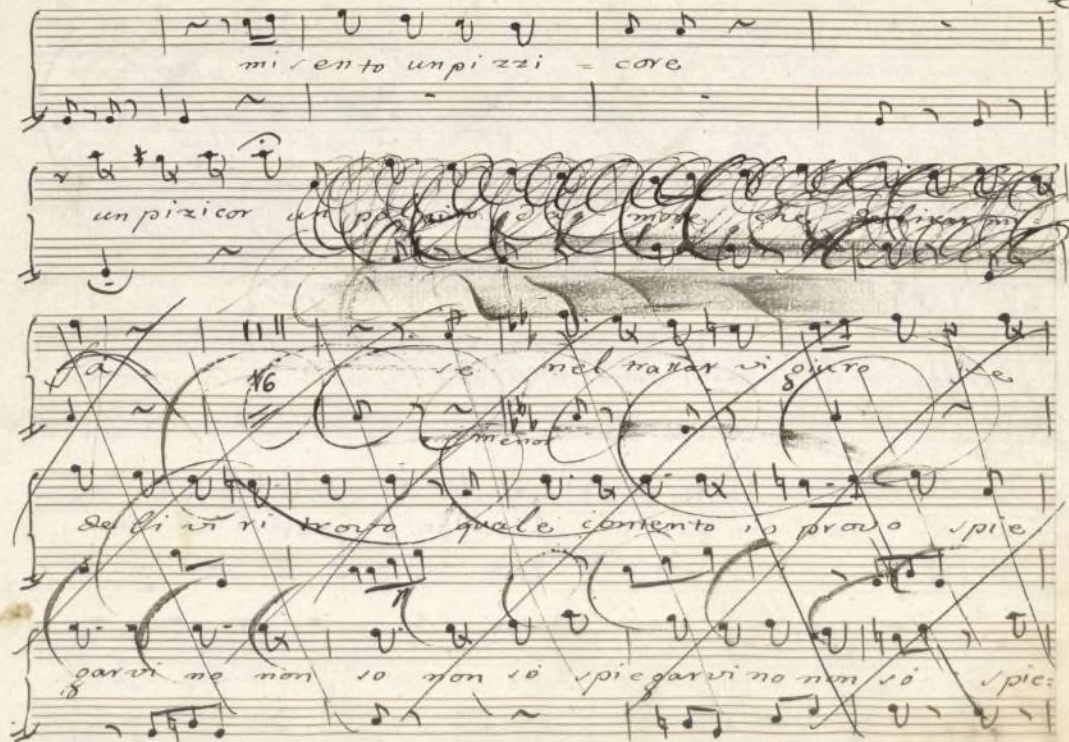 mi sento un pizzi = core
un pizicor un
fà se nel trattar vi giuro se
menor
de li vi ri trovo quale contento io provo spie
garvi no non so non sò spiegarvi no non sò spie=